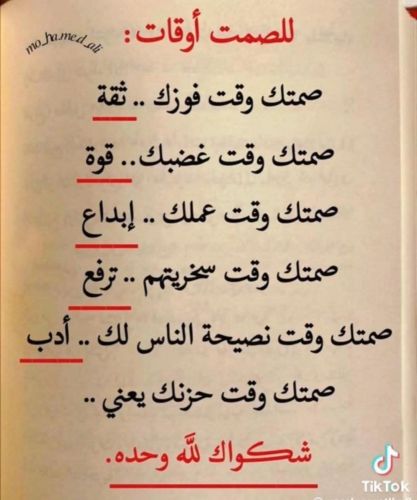 للصمت أوقات :
mo_hamed_ali
صمتك وقت فوزك .. ثقة
صمتك وقت غضبك.. قوة
صمتك وقت عملك .. إبداع
صمتك وقت سخريتهم .. ترفع
صمتك وقت نصيحة الناس لك .. أدب
صمتك وقت حزنك يعني ..
شكواك للَّه وحده.
TikTok